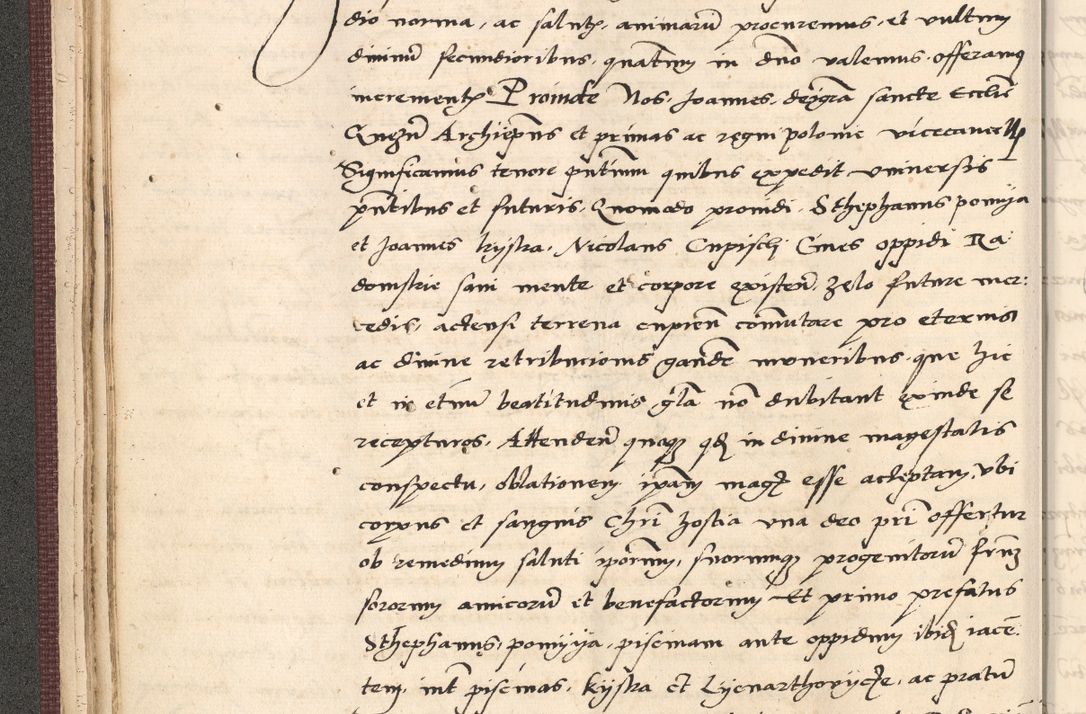 dio norma, ac salutis animarum procuremus, et vultum
divinum fecundioribus, quantum in dno valemus, offeramus
incrementis Proinde Nos, Joannes, dei gra sancte Ecclie
Gnezn Archiepus et primas ac regni polonie vicecancell
Significamus tenore pntium quibus expedit vniuersis
pntibus et futuris, Quomodo prouidi, Sthephanus pomyia
et Joannes kystra, Nicolaus Cupisch Ciues oppidi Ra
domskie sani mente et corpore existen, zelo future mer:
cedis, accensi terrena cupien commutare pro eternis
ac diuine retribucionis gaude muneribus, que hic
et in eternu beatitudinis gla non dubitant exinde se
recepturos, Attenden quoque quod in diuine magestatis
conspectu, oblationem ipam magis esse acceptam, vbi
corpus et sanguis Chri hostia vna deo pri offertur
ob remedium saluti ipsorum, suorumque progenitoru frm
sororum amicoru et benefactorum Et primo prefatus
Sthephanus, pomyya, piscinam ante oppidum ibidem iacen
tem, int piscinas, kystra et Lyenarthovycze, ac pratum